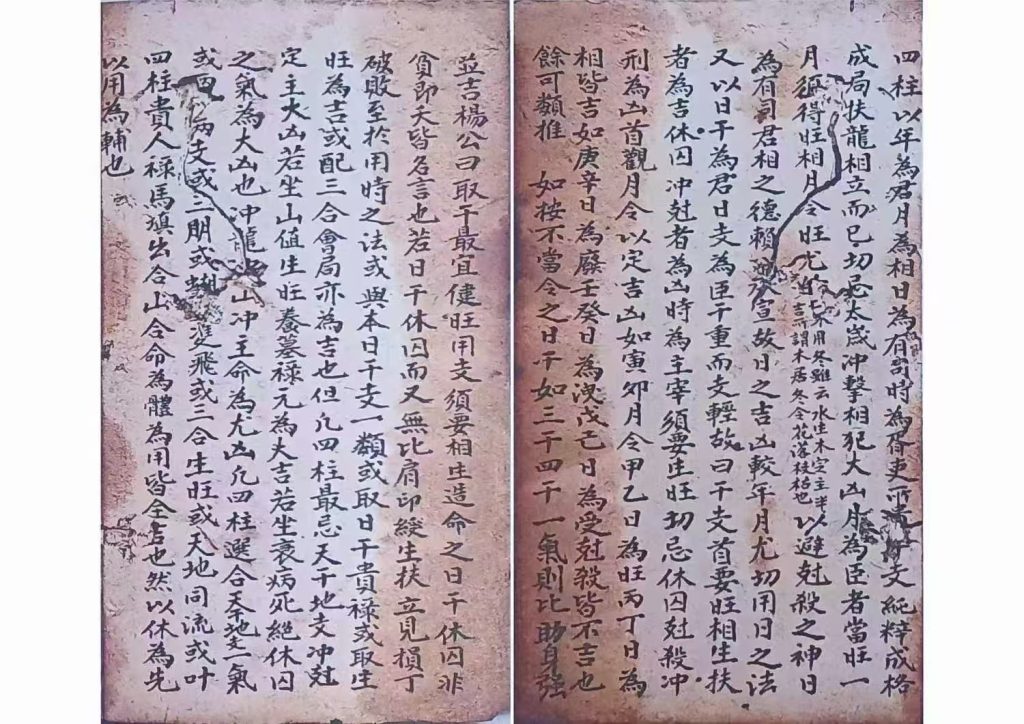 四柱以年為君月為相日為有司時為胥吏而干支純粹成格
成局扶龍相立而已切忌太歲冲擊相犯大凶月為臣者當旺一
月須得旺相月令旺尤當不用冬雖云水生木定主半吉所謂木居冬令花落枝枯也以避尅殺之神日
為有司君相之德賴承宣故日之吉凶較年月尤切用日之法
又以日干為君日支為臣干重而支輕故曰干支首要旺相生扶
者為吉休囚冲尅者為凶時為主宰須要生旺切忌休囚尅殺冲
刑為凶首觀月令以定吉凶如寅卯月令甲乙日為旺丙丁日為
相皆吉如庚辛日為廢壬癸日為洩戊己日為受尅殺皆不吉也
餘可類推 如按不當令之日干如三干四干一氣則比助身強
並吉楊公曰取干最宜健旺用支須要相生造命之日干休囚非
貧即夭皆名言也若日干休囚而又無比肩印綬生扶立見損丁
破敗至於用時之法或與本日干支一類或取日干貴禄或取生
旺為吉或配三合會局亦為吉也但凡四柱最忌天干地支冲尅
定主大凶若坐山值生旺養墓禄元為大吉若坐衰病死絕休囚
之氣為大凶也冲龍山冲主命為尤凶凡四柱選合天地一氣
或两支或三朋或雙飛或三合生旺或天地同流或叶
四柱貴人禄馬填出合山合命為體為用皆全吉也然以休為先
以用為輔也